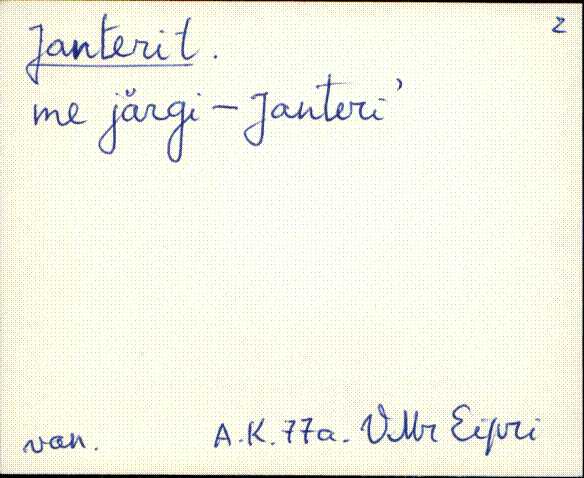 2
Janterit.
me järgi – Janteri’
van. A.K. 77a. VMr Eipri